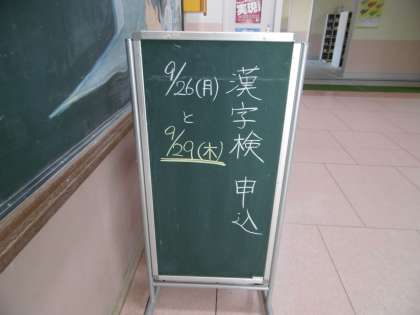 漢字検 申込
9/26(月)
と
9/29(木)
実現!